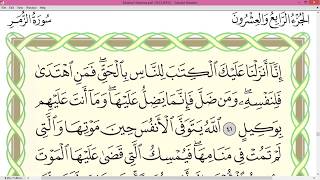 الجزء الرابع والعشرون
سورة الزمر
إِنَّا أَنزَلْنَا عَلَيْكَ الْكِتَٰبَ لِلنَّاسِ بِالْحَقِّ ۖ فَمَنِ اهْتَدَىٰ
فَلِنَفْسِهِ ۖ وَمَن ضَلَّ فَإِنَّمَا يَضِلُّ عَلَيْهَا ۖ وَمَا أَنتَ عَلَيْهِم
بِوَكِيلٍ ٤١ اللَّهُ يَتَوَفَّى الْأَنفُسَ حِينَ مَوْتِهَا وَالَّتِي
لَمْ تَمُتْ فِي مَنَامِهَا ۖ فَيُمْسِكُ الَّتِي قَضَىٰ عَلَيْهَا الْمَوْتَ